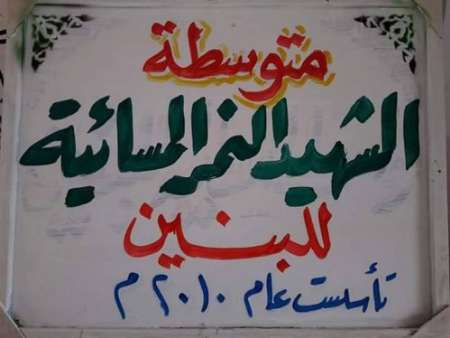 متوسطة
الشهيد النمر المسائية
للبنين
تأسست عام ٢٠١٠ م